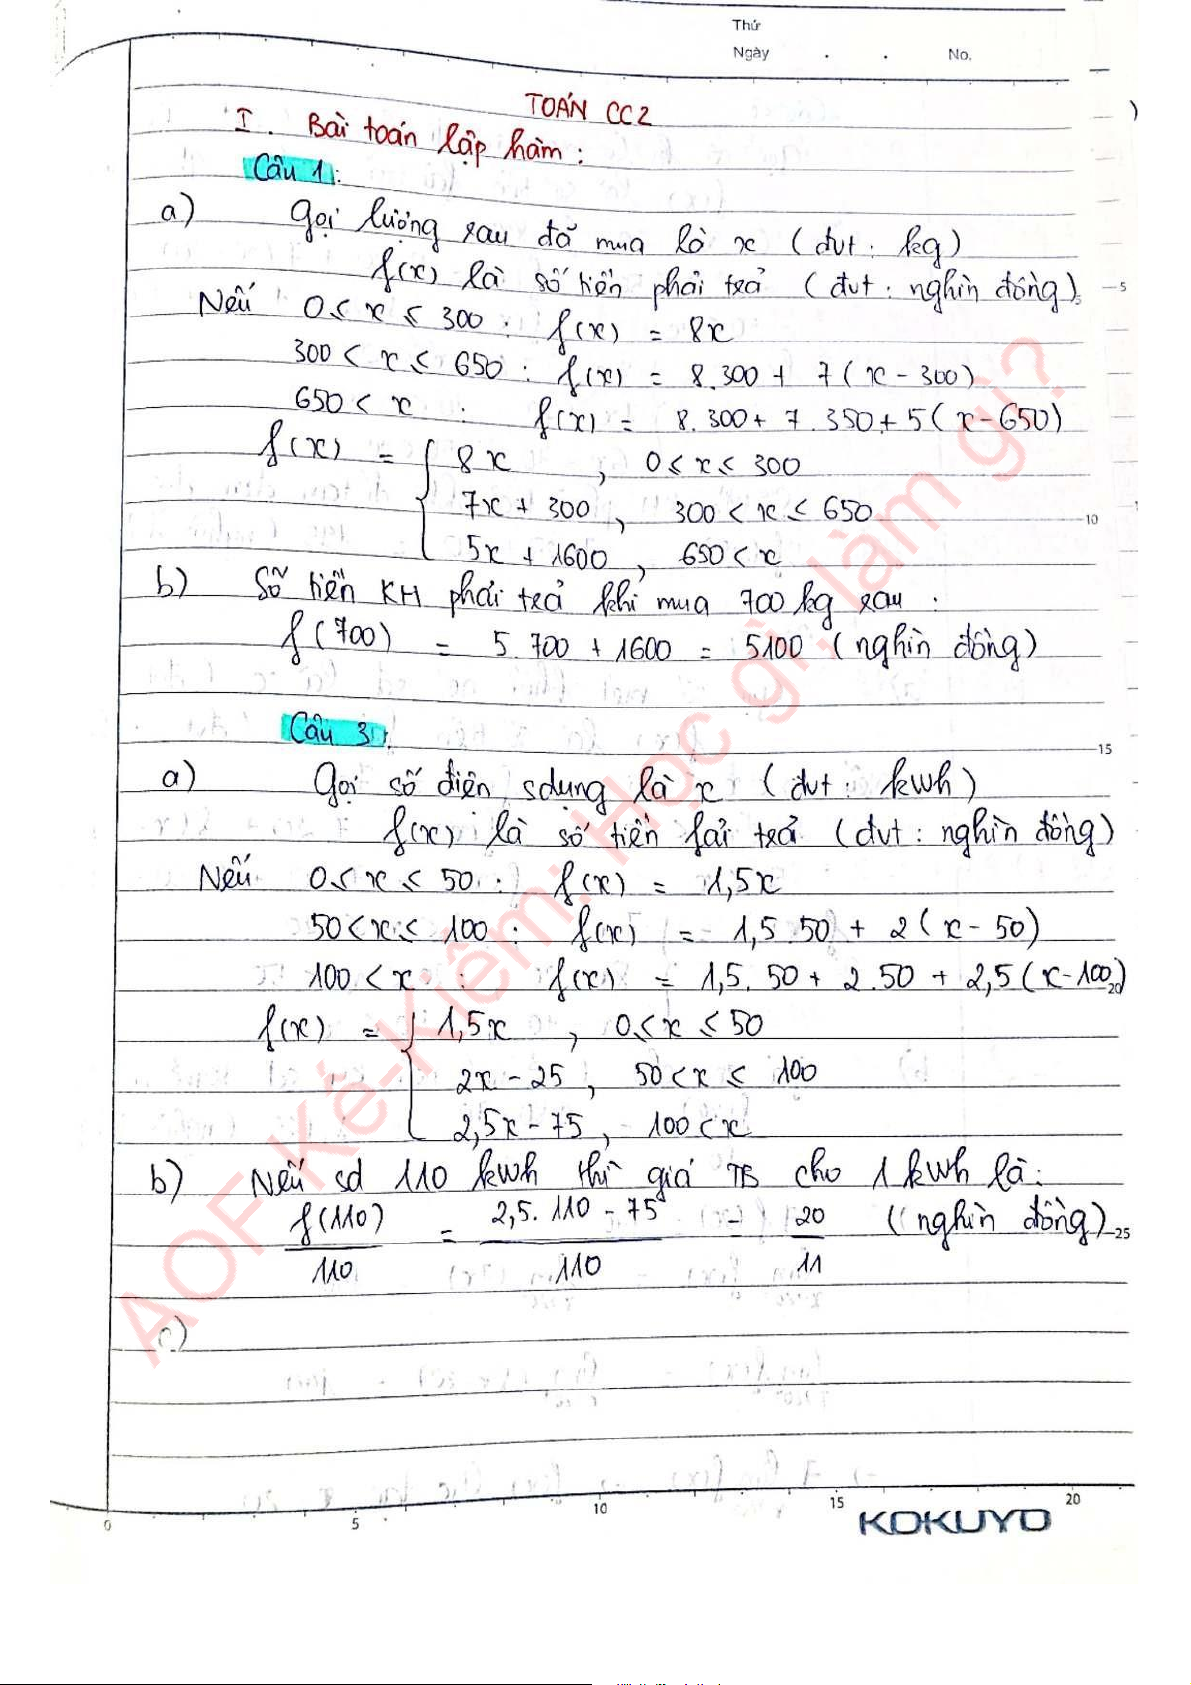 Thứ
Ngày . . No.
TOÁN CC2
I. Bài toán lập hàm:
Câu 1:
a) Gọi lượng rau đã mua là x (đvt: kg)
f(x) là số tiền phải trả (đvt: nghìn đồng)
Nếu 0 ≤ x ≤ 300: f(x) = 8x
300 < x ≤ 650: f(x) = 8.300 + 7(x - 300)
650 < x : f(x) = 8.300 + 7.350 + 5(x - 650)
f(x) = { 8x , 0 ≤ x ≤ 300
7x + 300 , 300 < x ≤ 650
5x + 1600 , 650 < x
b) Số tiền KH phải trả khi mua 700 kg rau:
f(700) = 5.700 + 1600 = 5100 (nghìn đồng)
Câu 3:
a) Gọi số điện sdụng là x (đvt: kwh)
f(x) là số tiền fải trả (đvt: nghìn đồng)
Nếu 0 ≤ x ≤ 50: f(x) = 1,5x
50 < x ≤ 100: f(x) = 1,5.50 + 2(x - 50)
100 < x : f(x) = 1,5.50 + 2.50 + 2,5(x - 100)
f(x) = { 1,5x , 0 ≤ x ≤ 50
2x - 25 , 50 < x ≤ 100
2,5x - 75 , 100 < x
b) Nếu sd 110 kwh thì giá TB cho 1 kwh là:
f(110)/110 = (2,5.110 - 75)/110 = 20/11 (nghìn đồng)
c)
5
10
15
20
25
0 5 10 15 20
KOKUYO
AOF Kế-Kiểm: Học gì, làm gì?